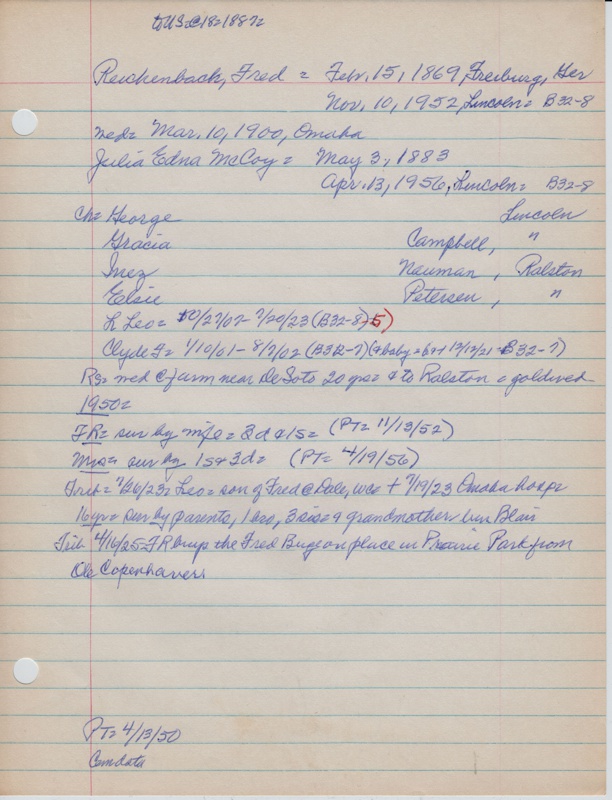 to US @ 18 = 1887 =
Reichenback, Fred = Febr. 15, 1869, Freiburg, Ger
Nov. 10, 1952, Lincoln = B32-8
med = Mar. 10, 1900, Omaha
Julia Edna McCoy = May 3, 1883
Apr. 13, 1956, Lincoln = B32-8
Ch = George Lincoln
Gracia Campbell, "
Inez Neuman, Ralston
Elsie Petersen, "
L Leo = 10/27/07 - 7/20/23 (B32-8)-5)
Clyde F = 1/10/01 - 8/7/02 (B32-7) (& baby = b&+ 12/12/21 - B32-7)
Rs = med @ farm near DeSoto 20 yrs = & to Ralston = gold wed
1950 =
FR = sur by wife = 3d & 1s = (PT = 11/13/52)
Mrs = sur by 1s & 3d = (PT = 4/19/56)
Trib = 7/26/23 = Leo = son of Fred @ Dale, was + 7/19/23 Omaha hosp =
16 yr = sur by parents, 1 bro, 3 sis = & grandmother bur Blair
Trib 4/16/25 = FR buys the Fred place in Prairie Park from
Ole Copenhaver.
PT = 4/13/50
Comdata